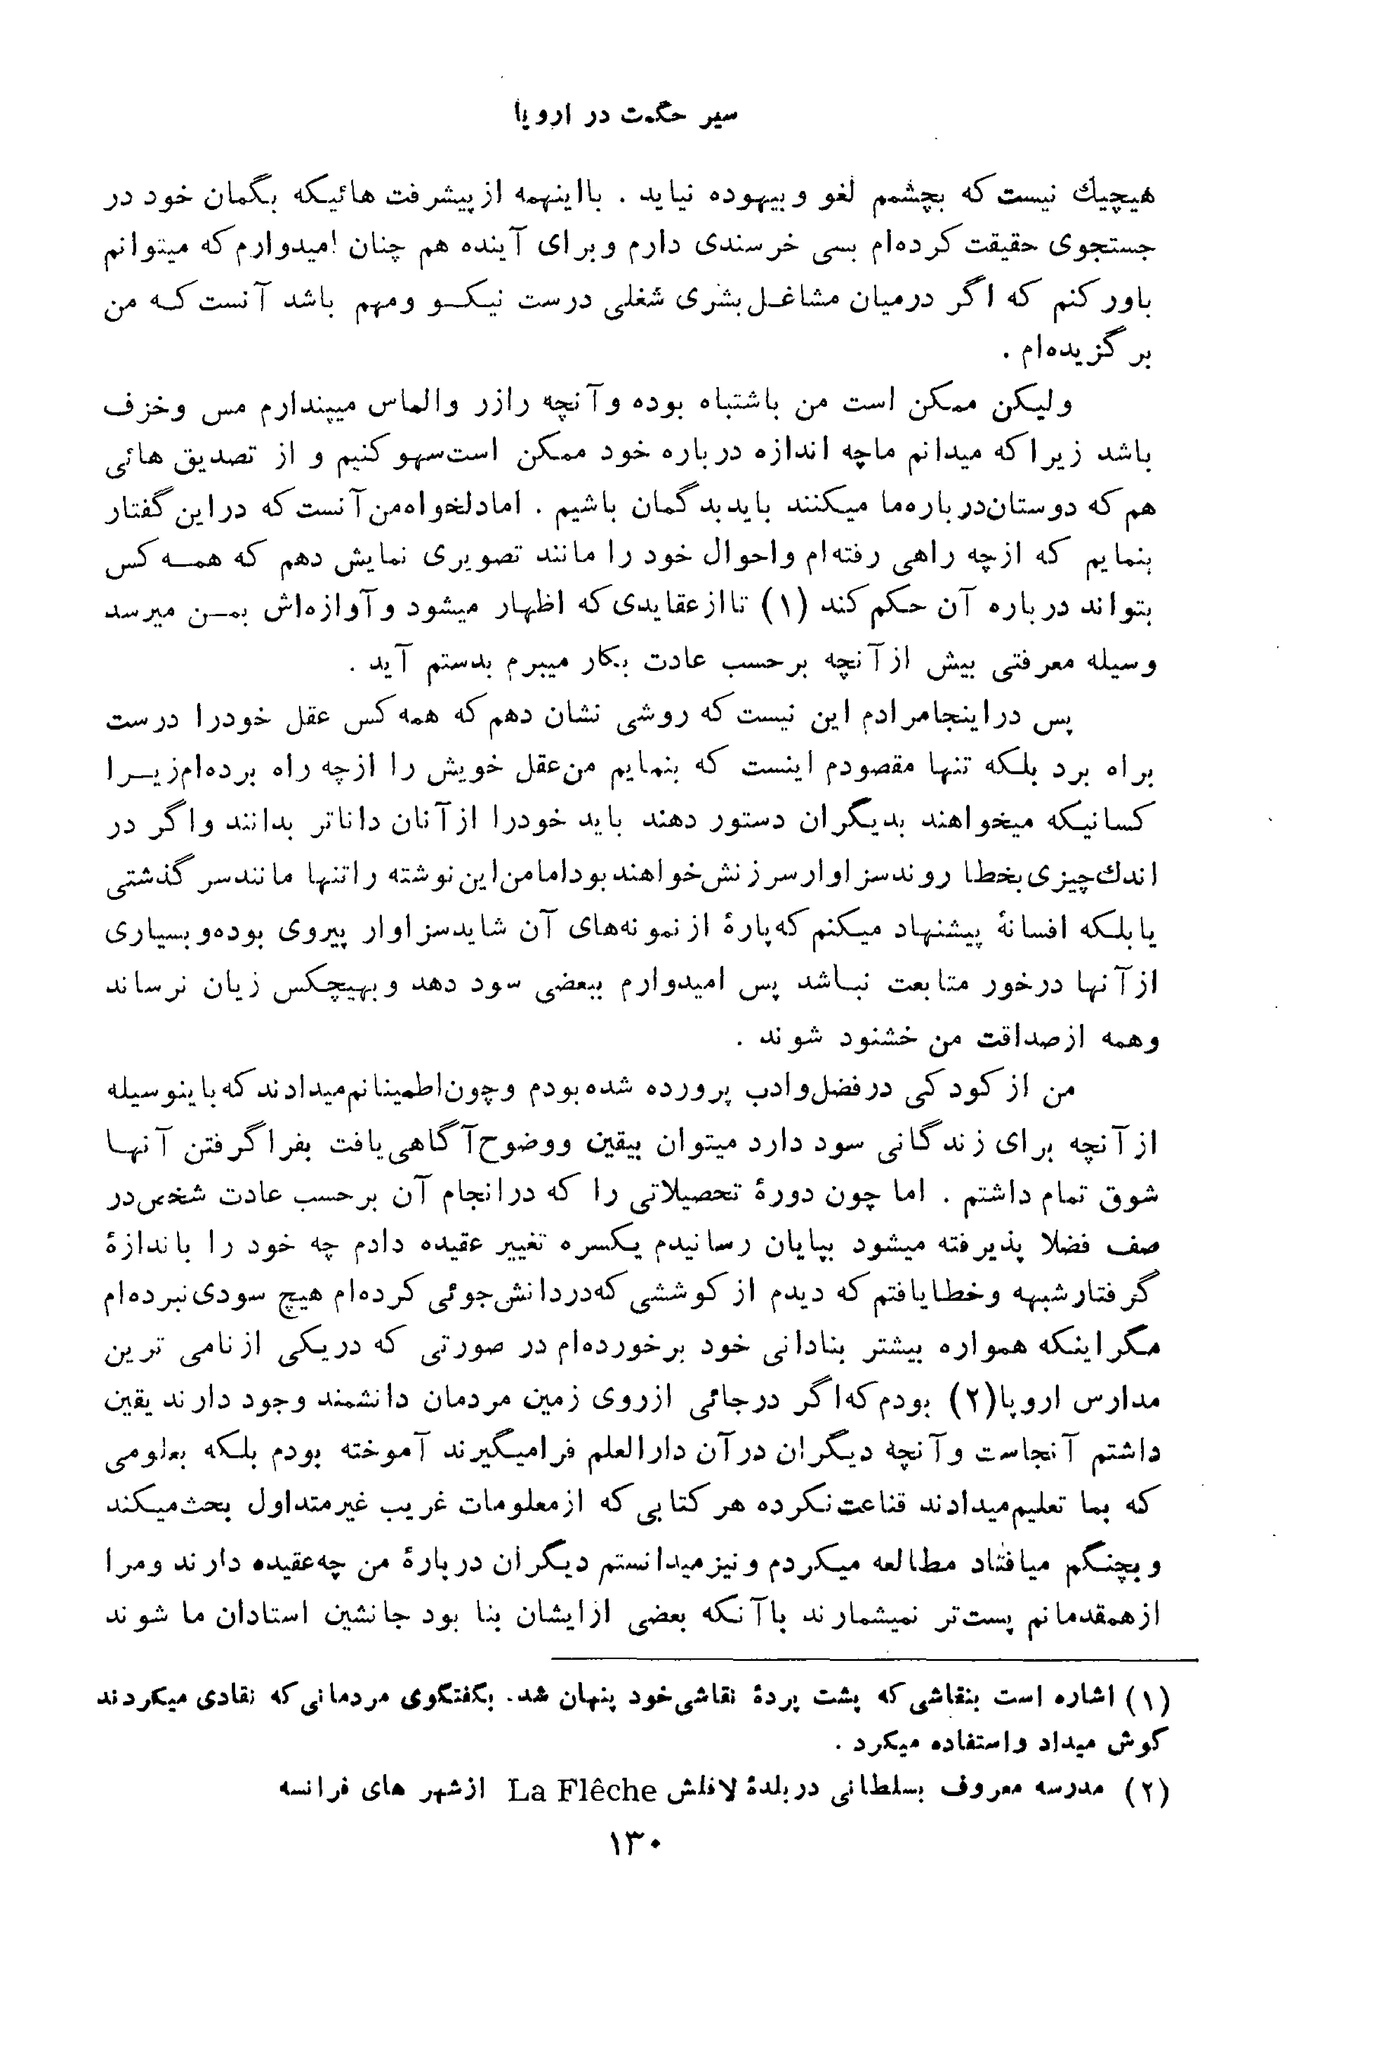 سیر حکمت در اروپا
هیچیك نیست که بچشمم لغو و بیهوده نیاید . بااینهمه از پیشرفت هائیکه بگمان خود در
جستجوی حقیقت کرده‌ام بسی خرسندی دارم و برای آینده هم چنان امیدوارم که میتوانم
باور کنم که اگر درمیان مشاغل بشری شغلی درست نیکو ومهم باشد آنست که من
برگزیده‌ام .
ولیکن ممکن است من باشتباه بوده و آنچه رازر والماس میپندارم مس وخزف
باشد زیرا که میدانم ماچه اندازه درباره خود ممکن است سهو کنیم و از تصدیق هائی
هم که دوستان درباره ما میکنند باید بدگمان باشیم . اما دلخواه من آنست که در این گفتار
بنمایم که ازچه راهی رفته‌ام واحوال خود را مانند تصویری نمایش دهم که همه کس
بتواند درباره آن حکم کند (۱) تا از عقایدی که اظهار میشود و آوازه‌اش بمن میرسد
وسیله معرفتی بیش از آنچه برحسب عادت بکار میبرم بدستم آید .
پس در اینجا مرادم این نیست که روشی نشان دهم که همه کس عقل خودرا درست
براه برد بلکه تنها مقصودم اینست که بنمایم من عقل خویش را ازچه راه برده‌ام زیرا
کسانیکه میخواهند بدیگران دستور دهند باید خودرا از آنان داناتر بدانند واگر در
اندك چیزی بخطا روند سزاوار سرزنش خواهند بود اما من این نوشته را تنها مانند سرگذشتی
یا بلکه افسانهٔ پیشنهاد میکنم که پارهٔ از نمونه‌های آن شاید سزاوار پیروی بوده و بسیاری
از آنها درخور متابعت نباشد پس امیدوارم ببعضی سود دهد و بهیچکس زیان نرساند
وهمه از صداقت من خشنود شوند .
من از کودکی در فضل وادب پرورده شده بودم وچون اطمینانم میدادند که باینوسیله
از آنچه برای زندگانی سود دارد میتوان بیقین ووضوح آگاهی یافت بفراگرفتن آنها
شوق تمام داشتم . اما چون دورهٔ تحصیلاتی را که درانجام آن برحسب عادت شخص در
صف فضلا پذیرفته میشود بپایان رسانیدم یکسره تغییر عقیده دادم چه خود را باندازهٔ
گرفتار شبهه وخطا یافتم که دیدم از کوششی که در دانش جوئی کرده‌ام هیچ سودی نبرده‌ام
مگر اینکه همواره بیشتر بنادانی خود برخورده‌ام در صورتی که دریکی از نامی ترین
مدارس اروپا(۲) بودم که اگر درجائی ازروی زمین مردمان دانشمند وجود دارند یقین
داشتم آنجاست و آنچه دیگران در آن دارالعلم فرامیگیرند آموخته بودم بلکه بعلومی
که بما تعلیم میدادند قناعت نکرده هر کتابی که ازمعلومات غریب غیرمتداول بحث میکند
و بچنگم میافتاد مطالعه میکردم و نیز میدانستم دیگران دربارهٔ من چه عقیده دارند ومرا
از همقدمانم پست تر نمیشمارند با آنکه بعضی ازایشان بنا بود جانشین استادان ما شوند
(۱) اشاره است بنقاشی که پشت پردهٔ نقاشی خود پنهان شد. بگفتگوی مردمانی که نقادی میکردند
گوش میداد واستفاده میکرد .
(۲) مدرسه معروف بسلطانی در بلدهٔ لافلش La Flêche ازشهر های فرانسه
۱۳۰